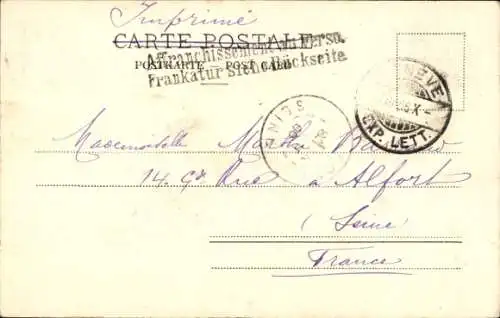 Imprimé
CARTE POSTALE
Affranchissement au Verso.
POSTKARTE — POST CARD
Frankatur siehe Rückseite
GENÈVE
X
EXP. LETT.
SEINE
Mademoiselle
14. Gde Rue à Alfort
(Seine)
France